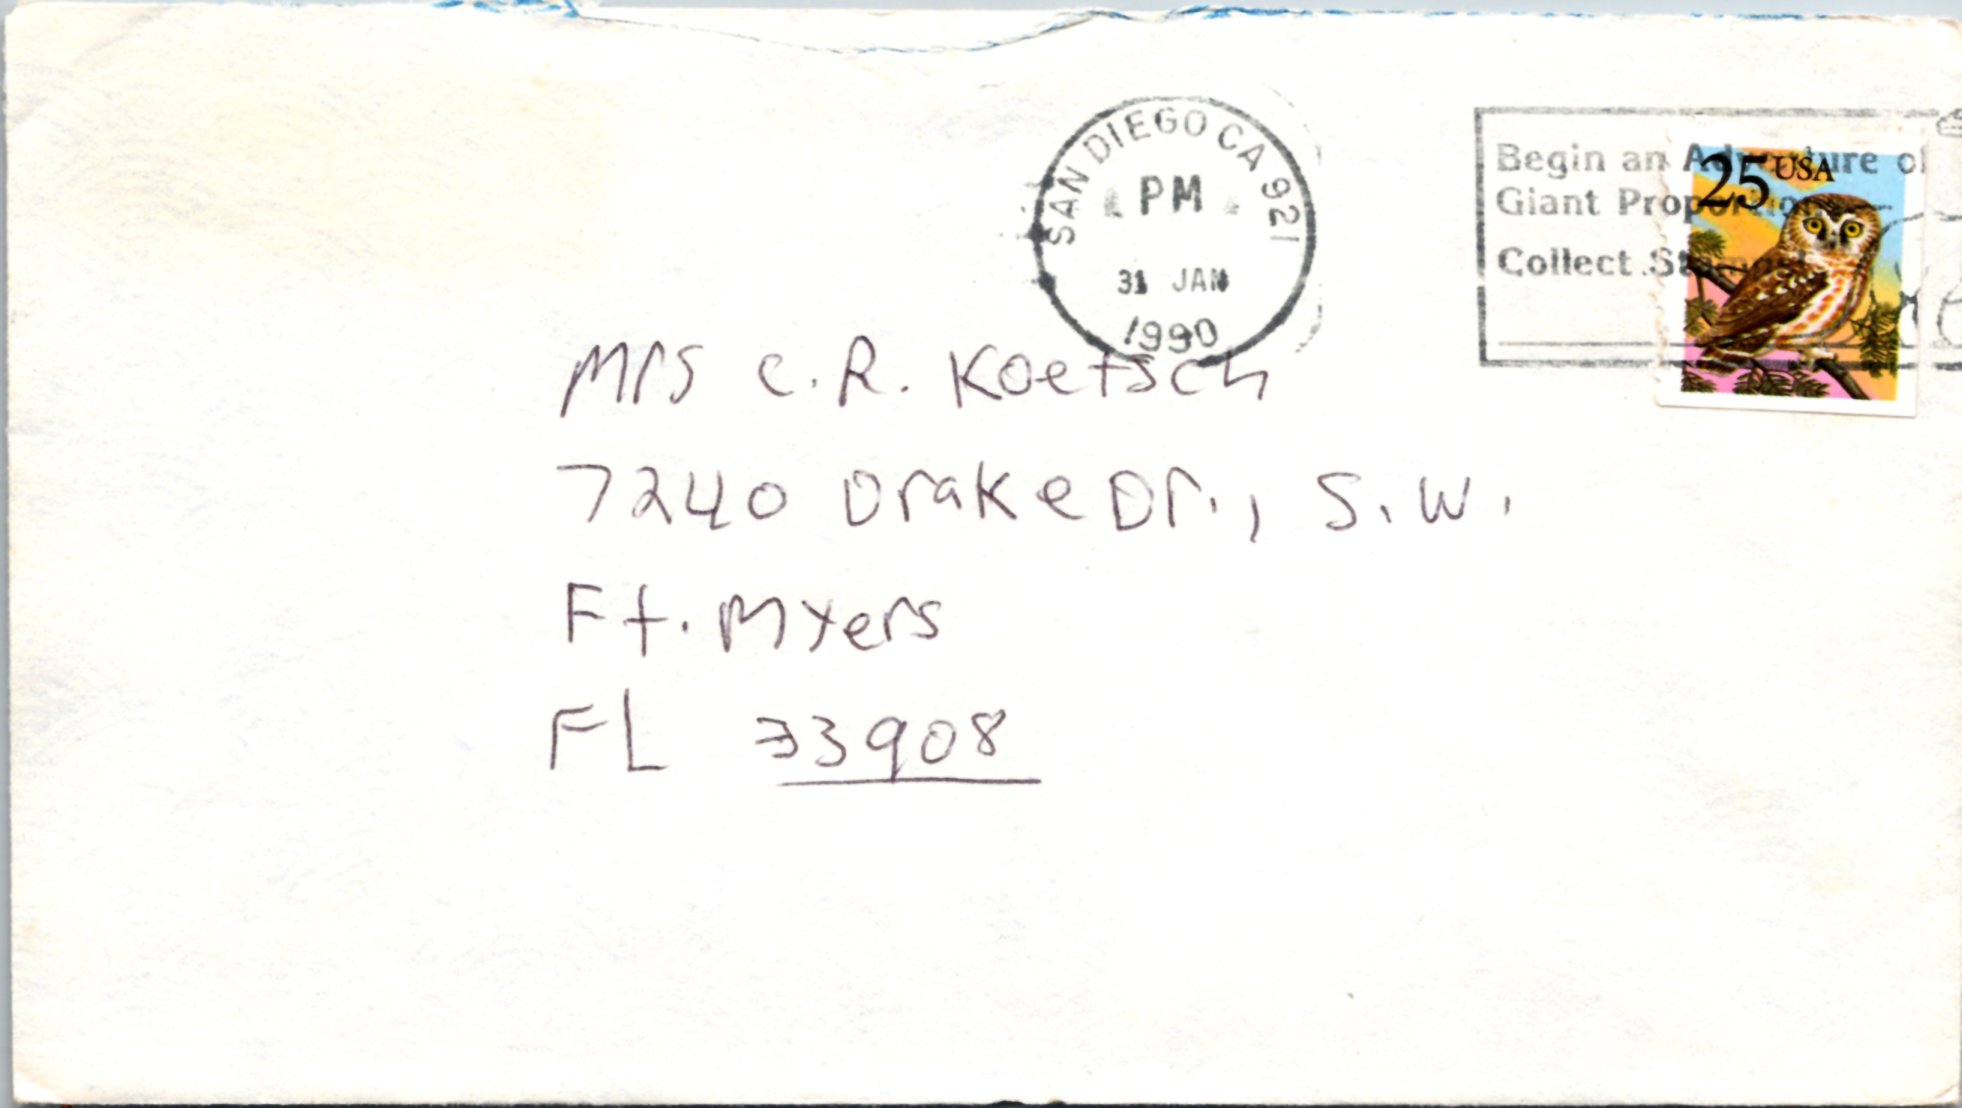 SAN DIEGO CA 921
PM
31 JAN
1990
Begin an Adventure of
Giant Proportions
Collect Stamps
25 USA
Mrs C. R. Koetsch
7240 Drake Dr., S.W.
Ft. Myers
FL 33908